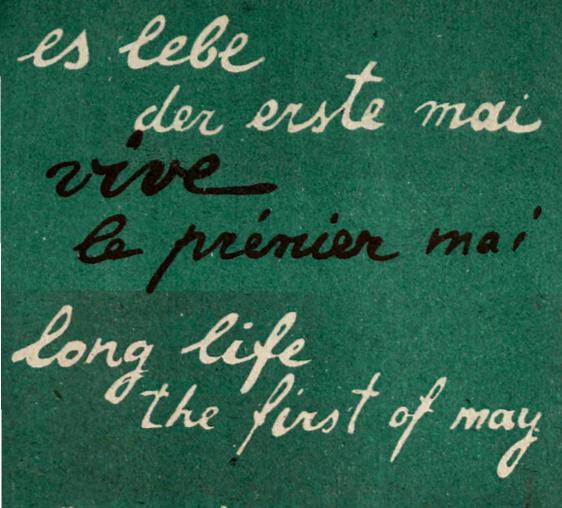 es lebe
der erste mai
vive
le prémier mai
long life
the first of may